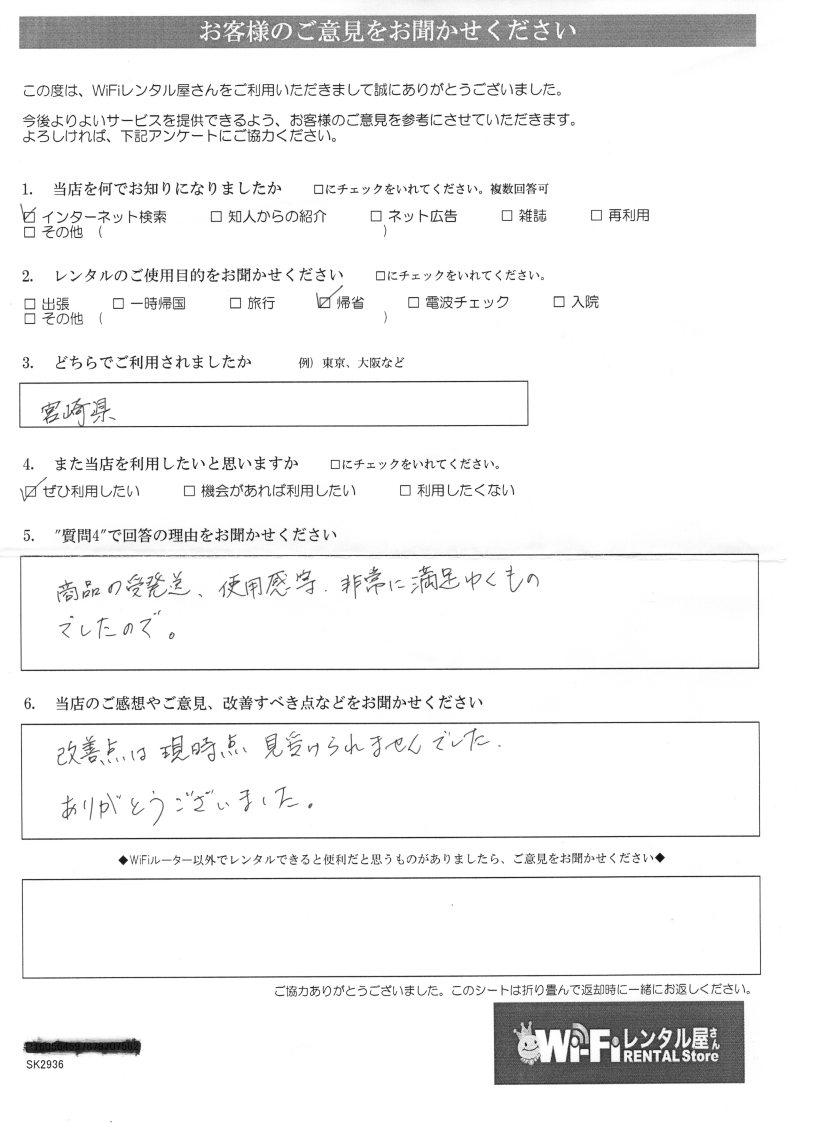 お客様のご意見をお聞かせください
この度は、WiFiレンタル屋さんをご利用いただきまして誠にありがとうございました。
今後よりよいサービスを提供できるよう、お客様のご意見を参考にさせていただきます。
よろしければ、下記アンケートにご協力ください。
1. 当店を何でお知りになりましたか □にチェックをいれてください。複数回答可
☑ インターネット検索 □ 知人からの紹介 □ ネット広告 □ 雑誌 □ 再利用
□ その他 ( )
2. レンタルのご使用目的をお聞かせください □にチェックをいれてください。
□ 出張 □ 一時帰国 □ 旅行 ☑ 帰省 □ 電波チェック □ 入院
□ その他 ( )
3. どちらでご利用されましたか 例）東京、大阪など
宮崎県
4. また当店を利用したいと思いますか □にチェックをいれてください。
☑ ぜひ利用したい □ 機会があれば利用したい □ 利用したくない
5. ″質問4″で回答の理由をお聞かせください
商品の受発送、使用感等、非常に満足ゆくもの
でしたので。
6. 当店のご感想やご意見、改善すべき点などをお聞かせください
改善点は現時点、見受けられませんでした.
ありがとうございました。
◆WiFiルーター以外でレンタルできると便利だと思うものがありましたら、ご意見をお聞かせください◆
ご協力ありがとうございました。このシートは折り畳んで返却時に一緒にお返しください。
Wi-Fiレンタル屋さん
RENTAL Store
SK2936